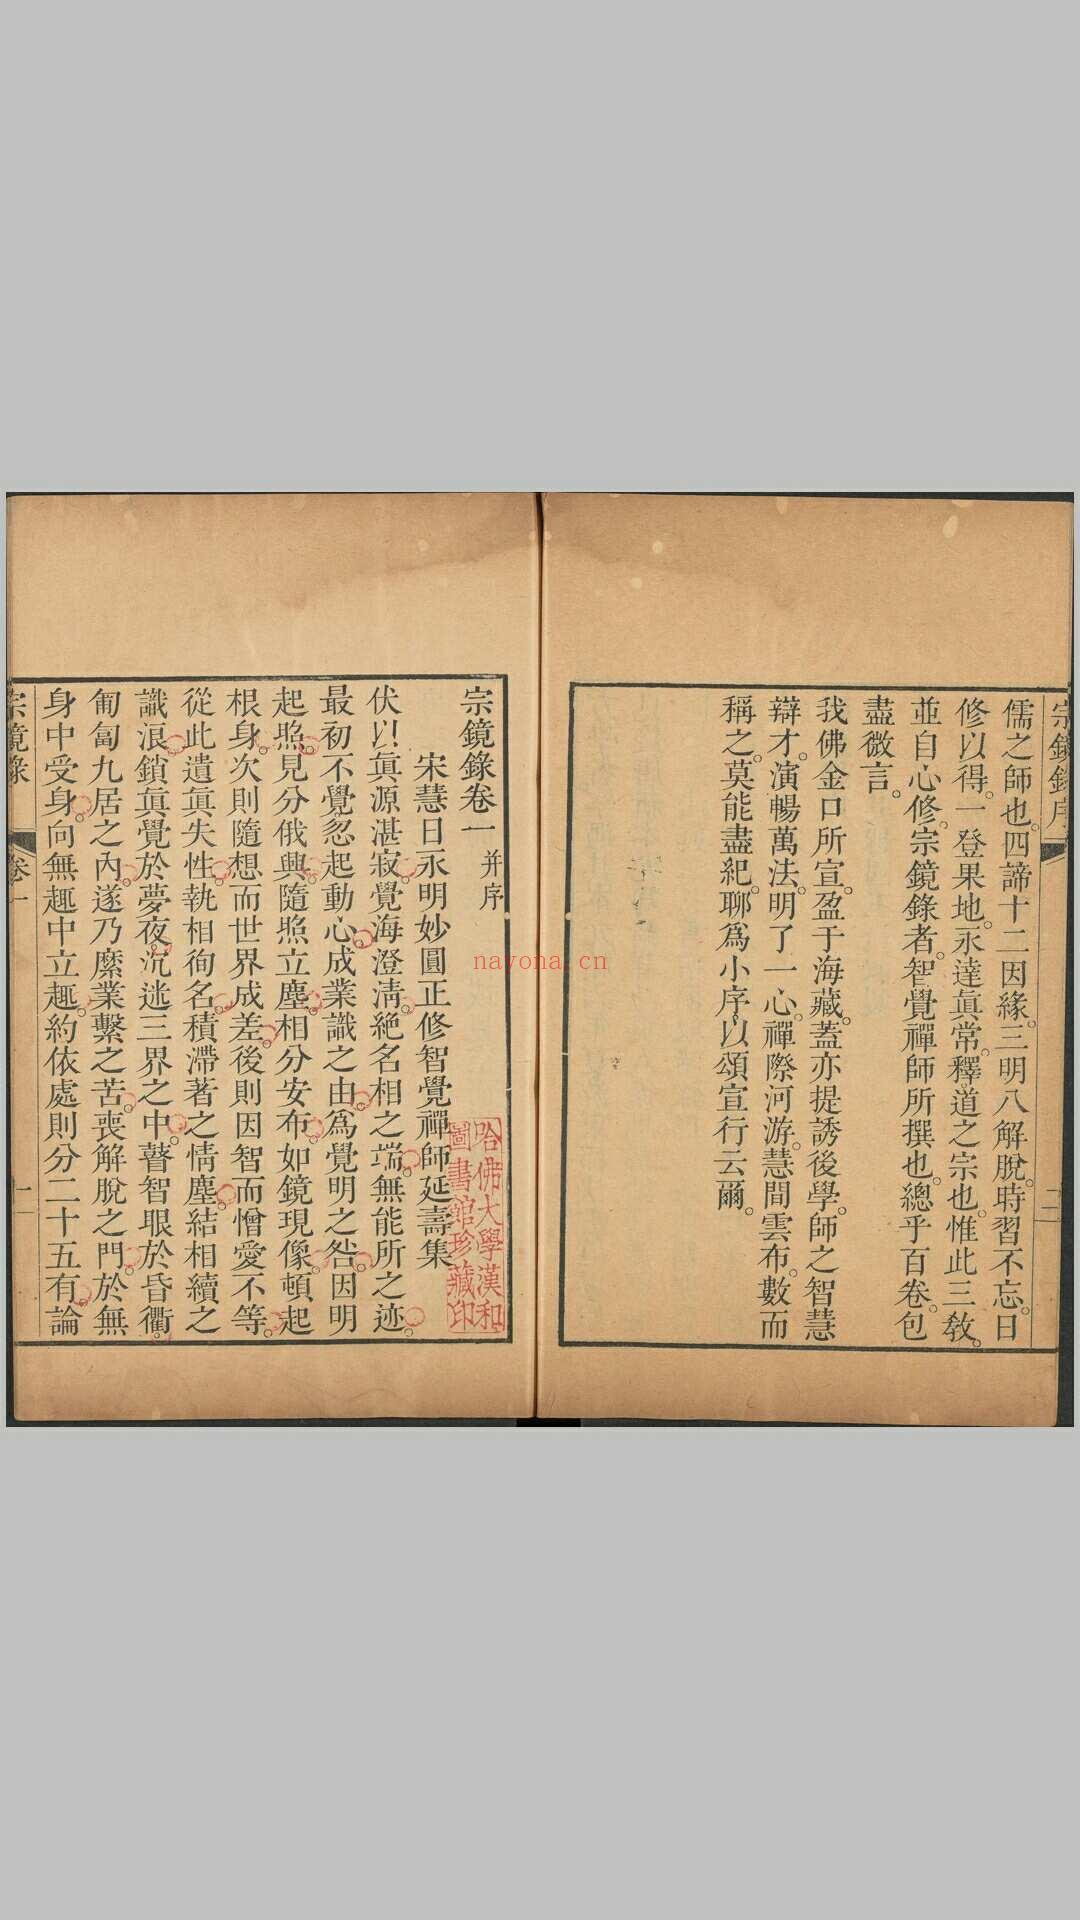 宗鏡錄序
二
儒之師也。四諦十二因緣。三明八解脫。時習不忘。日
修以得。一登果地。永達眞常。釋道之宗也。惟此三教。
並自心修。宗鏡錄者。智覺禪師所撰也。總乎百卷。包
盡微言。
我佛金口所宣。盈于海藏。蓋亦提誘後學。師之智慧
辯才。演暢萬法。明了一心。禪際河游。慧間雲布。數而
稱之。莫能盡紀。聊爲小序。以頌宣行云爾。
宗鏡錄卷一 并序
宋慧日永明妙圓正修智覺禪師延壽集
伏以眞源湛寂。覺海澄清。絶名相之端。無能所之迹。
最初不覺。忽起動心。成業識之由。爲覺明之咎。因明
起照。見分俄興。隨照立塵。相分安布。如鏡現像。頓起
根身。次則隨想而世界成差。後則因智而憎愛不等。
從此遺眞失性。執相徇名。積滯著之情塵。結相續之
識浪。鎖眞覺於夢夜。沉迷三界之中。瞽智眼於昏衢。
匍匐九居之內。遂乃縻業繫之苦。喪解脫之門。於無
身中受身。向無趣中立趣。約依處則分二十五有。論
宗鏡錄 卷一 一
哈佛大學漢和
圖書館珍藏印
nayona.cn